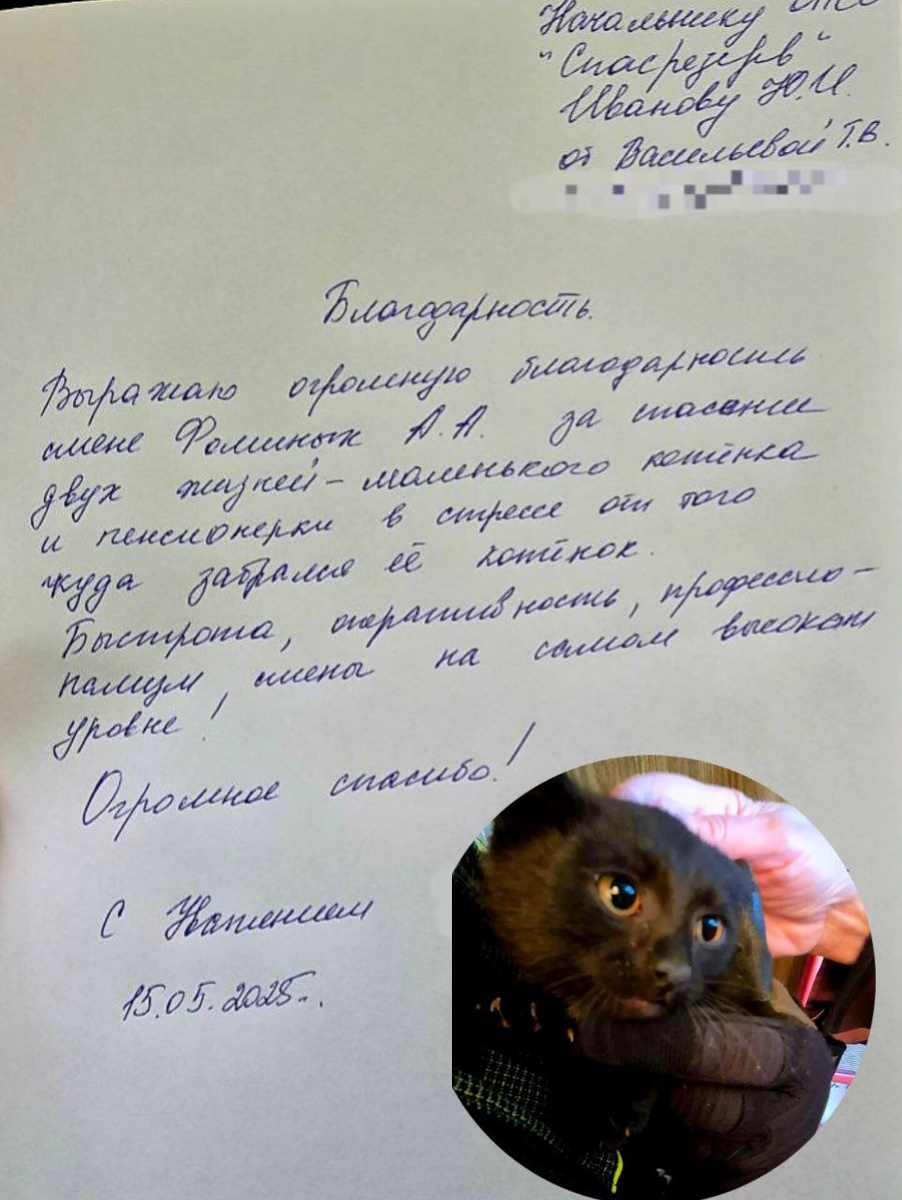 Начальнику
"Спасрезерв"
Иванову Ю.И.
от Васильевой Т.В.
Благодарность.
Выражаю огромную благодарность
смене Фоминых А.А. за спасение
двух жизней – маленького котёнка
и пенсионерки в стрессе от того
куда забрался её котёнок.
Быстрота, оперативность, профессио-
нализм, смены на самом высоком
уровне!
Огромное спасибо!
С Уважением
15.05.2025г.